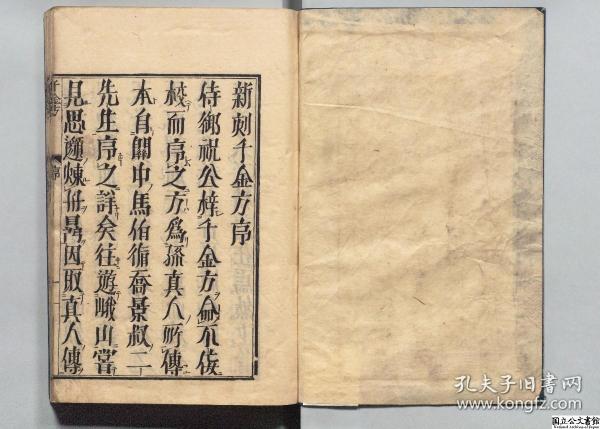 新刻千金方序
侍御祝公梓千金方命不佞
校而序之方為孫真人所傳
本自關中馬伯循喬景叔二
先生序之詳矣往遊峨山當
見思邈煉丹晷因取真人傳
千金方
序
孔夫子旧书网
www.kongfz.com
国立公文書館
National Archives of Japan